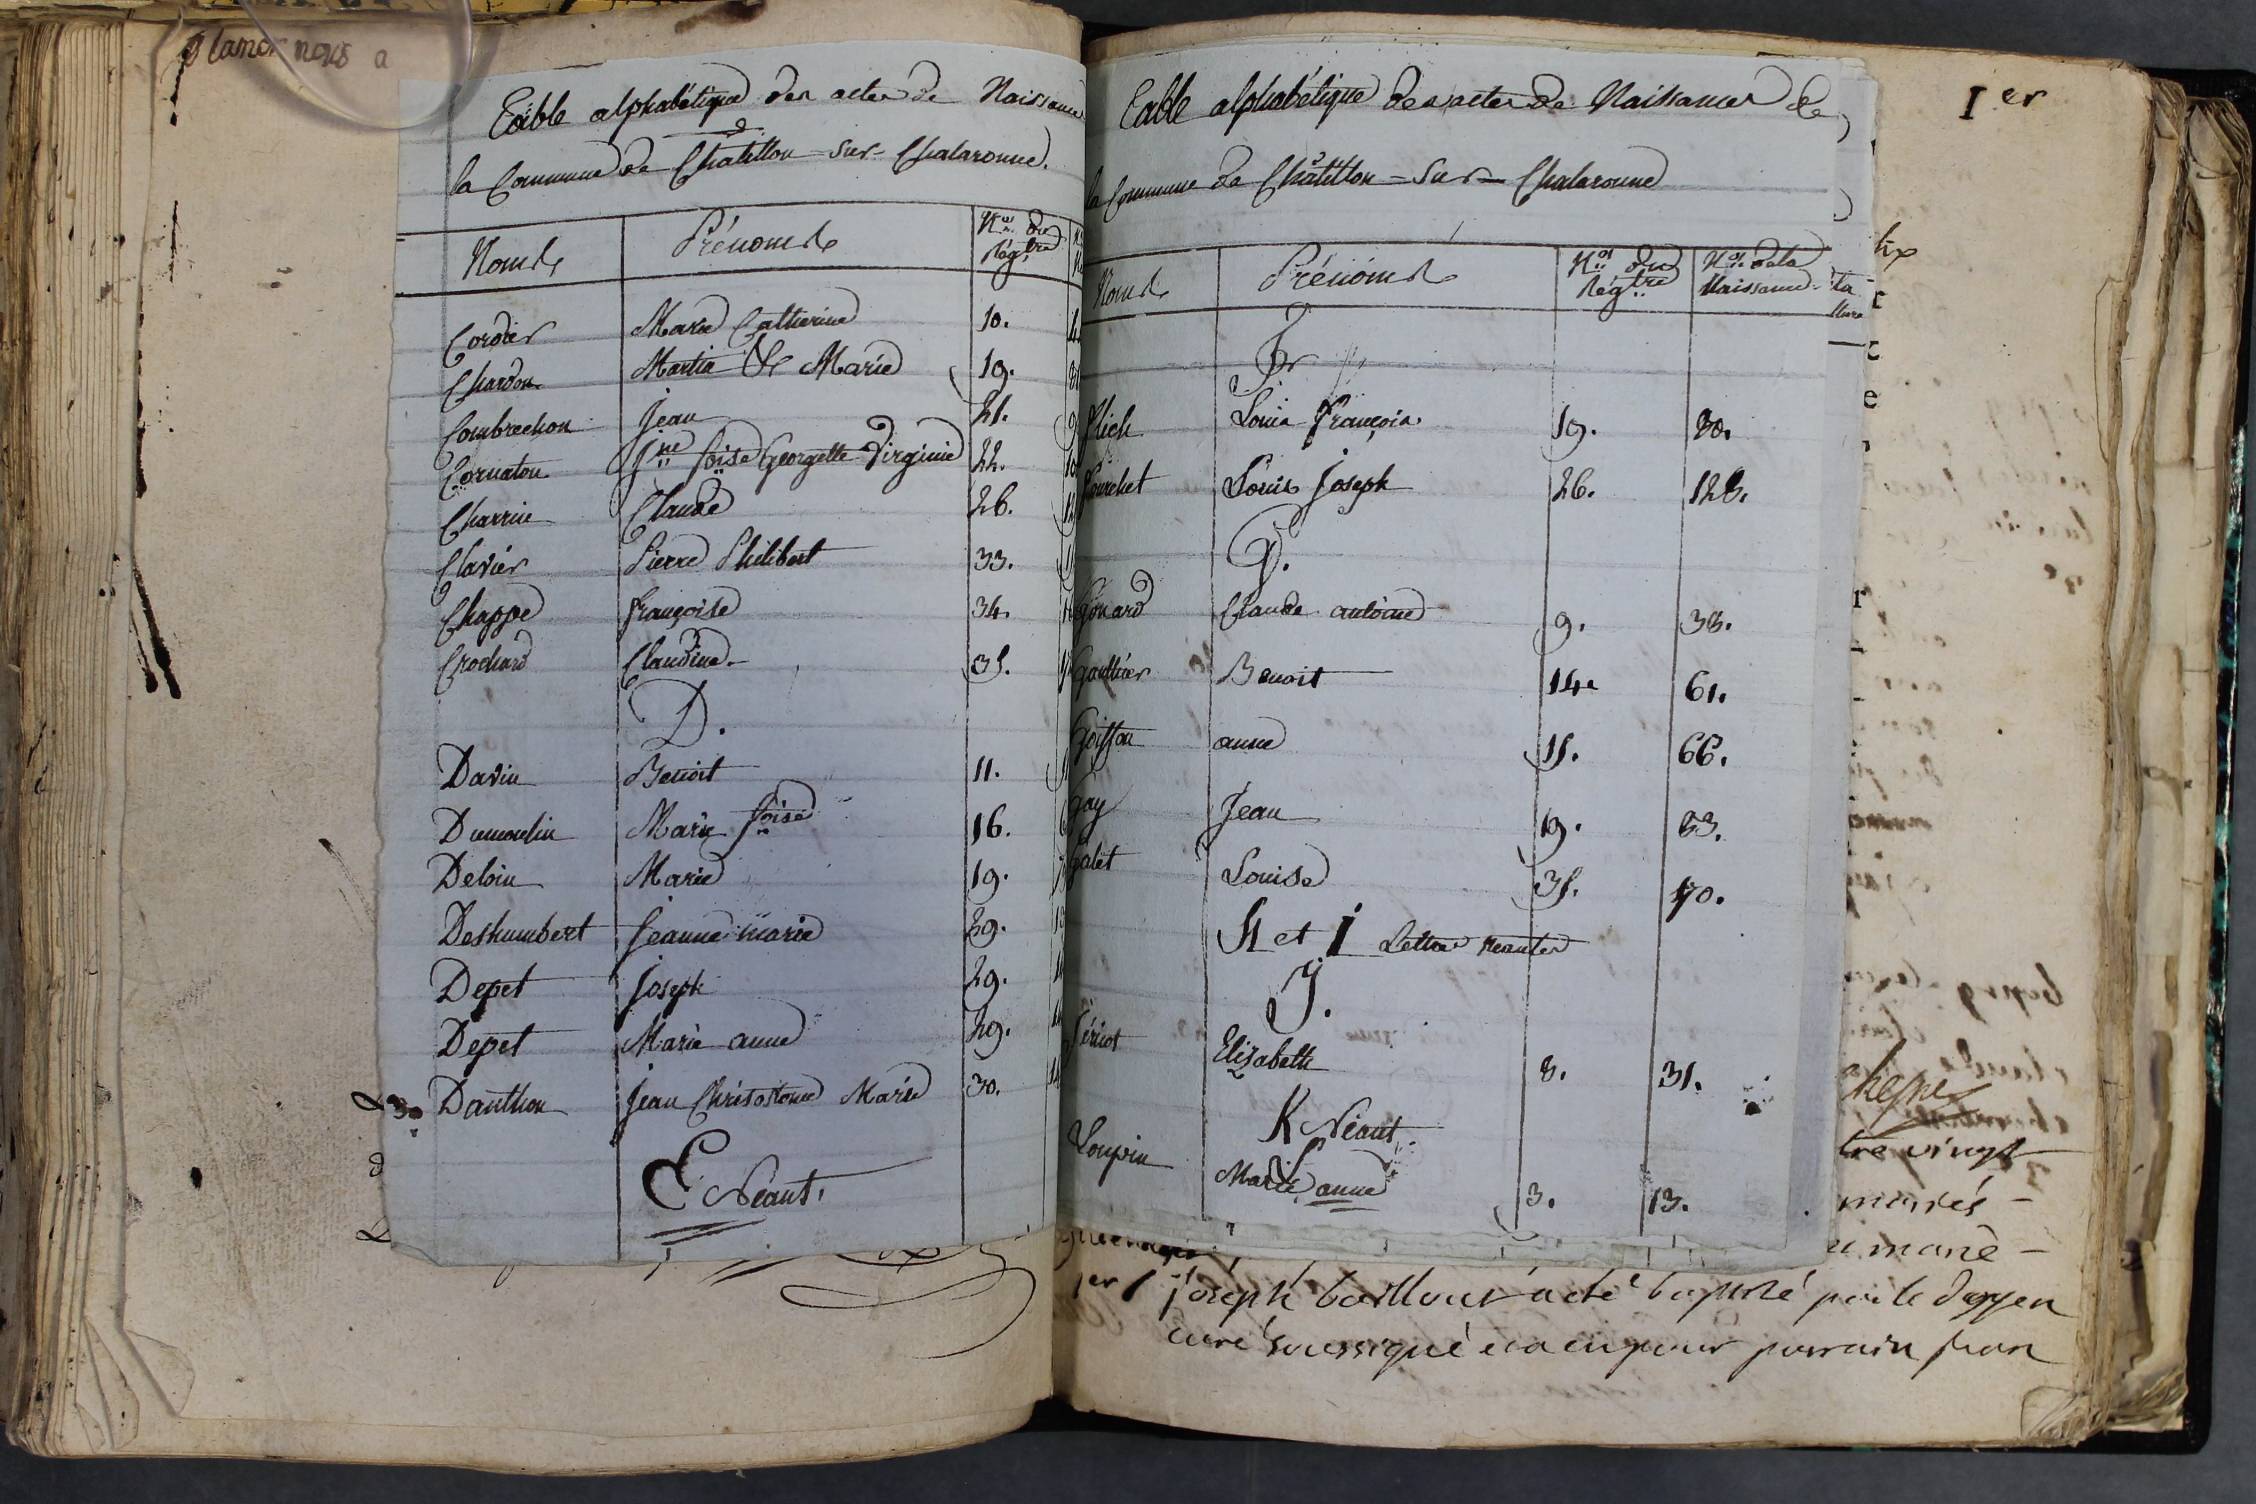 nous a
Table alphabétique des actes de Naissance
la Commune de Châtillon-sur-Chalaronne.
Noms Prénoms Nos. du Régtre
Cordier Marie Catherine 10.
Chardon Martin Marie 19.
Combrechon Jean 21.
Cornaton Jne foise Georgette Virginie 22.
Charrin Claude 26.
Clavier Pierre Philibert 33.
Chappe françoise 34.
Crochard Claudine 35.
D.
Davin Benoit 11.
Dumoulin Marie foise 16.
Deloin Marie 19.
Deshumbert Jeanne marie 29.
Depet Joseph 29.
Depet Marie anne 29.
Danthon Jean Chrisostome Marie 30.
E Néant.
Table alphabétique des actes de Naissances de
la Commune de Châtillon-sur-Chalaronne
Noms Prénoms Nos. du Régtre Nos. de la Naissance
F
flich Louis françois 19. 80.
fourchet Louis Joseph 26. 128.
G.
Gonard Claude antoine 9. 38.
Gauthier Benoit 14. 61.
Goiffon anne 15. 66.
Gay Jean 19. 83.
Galet Louise 35. 170.
H et I Lettres neantes
J.
Jéricot Elizabeth 8. 31.
K Néant
L
Loupin Marie anne 3. 13.
Ier
tre vingt
mariés
Joseph a eté baptisé par le doyen
curé soussigné a eu pour parrain fran